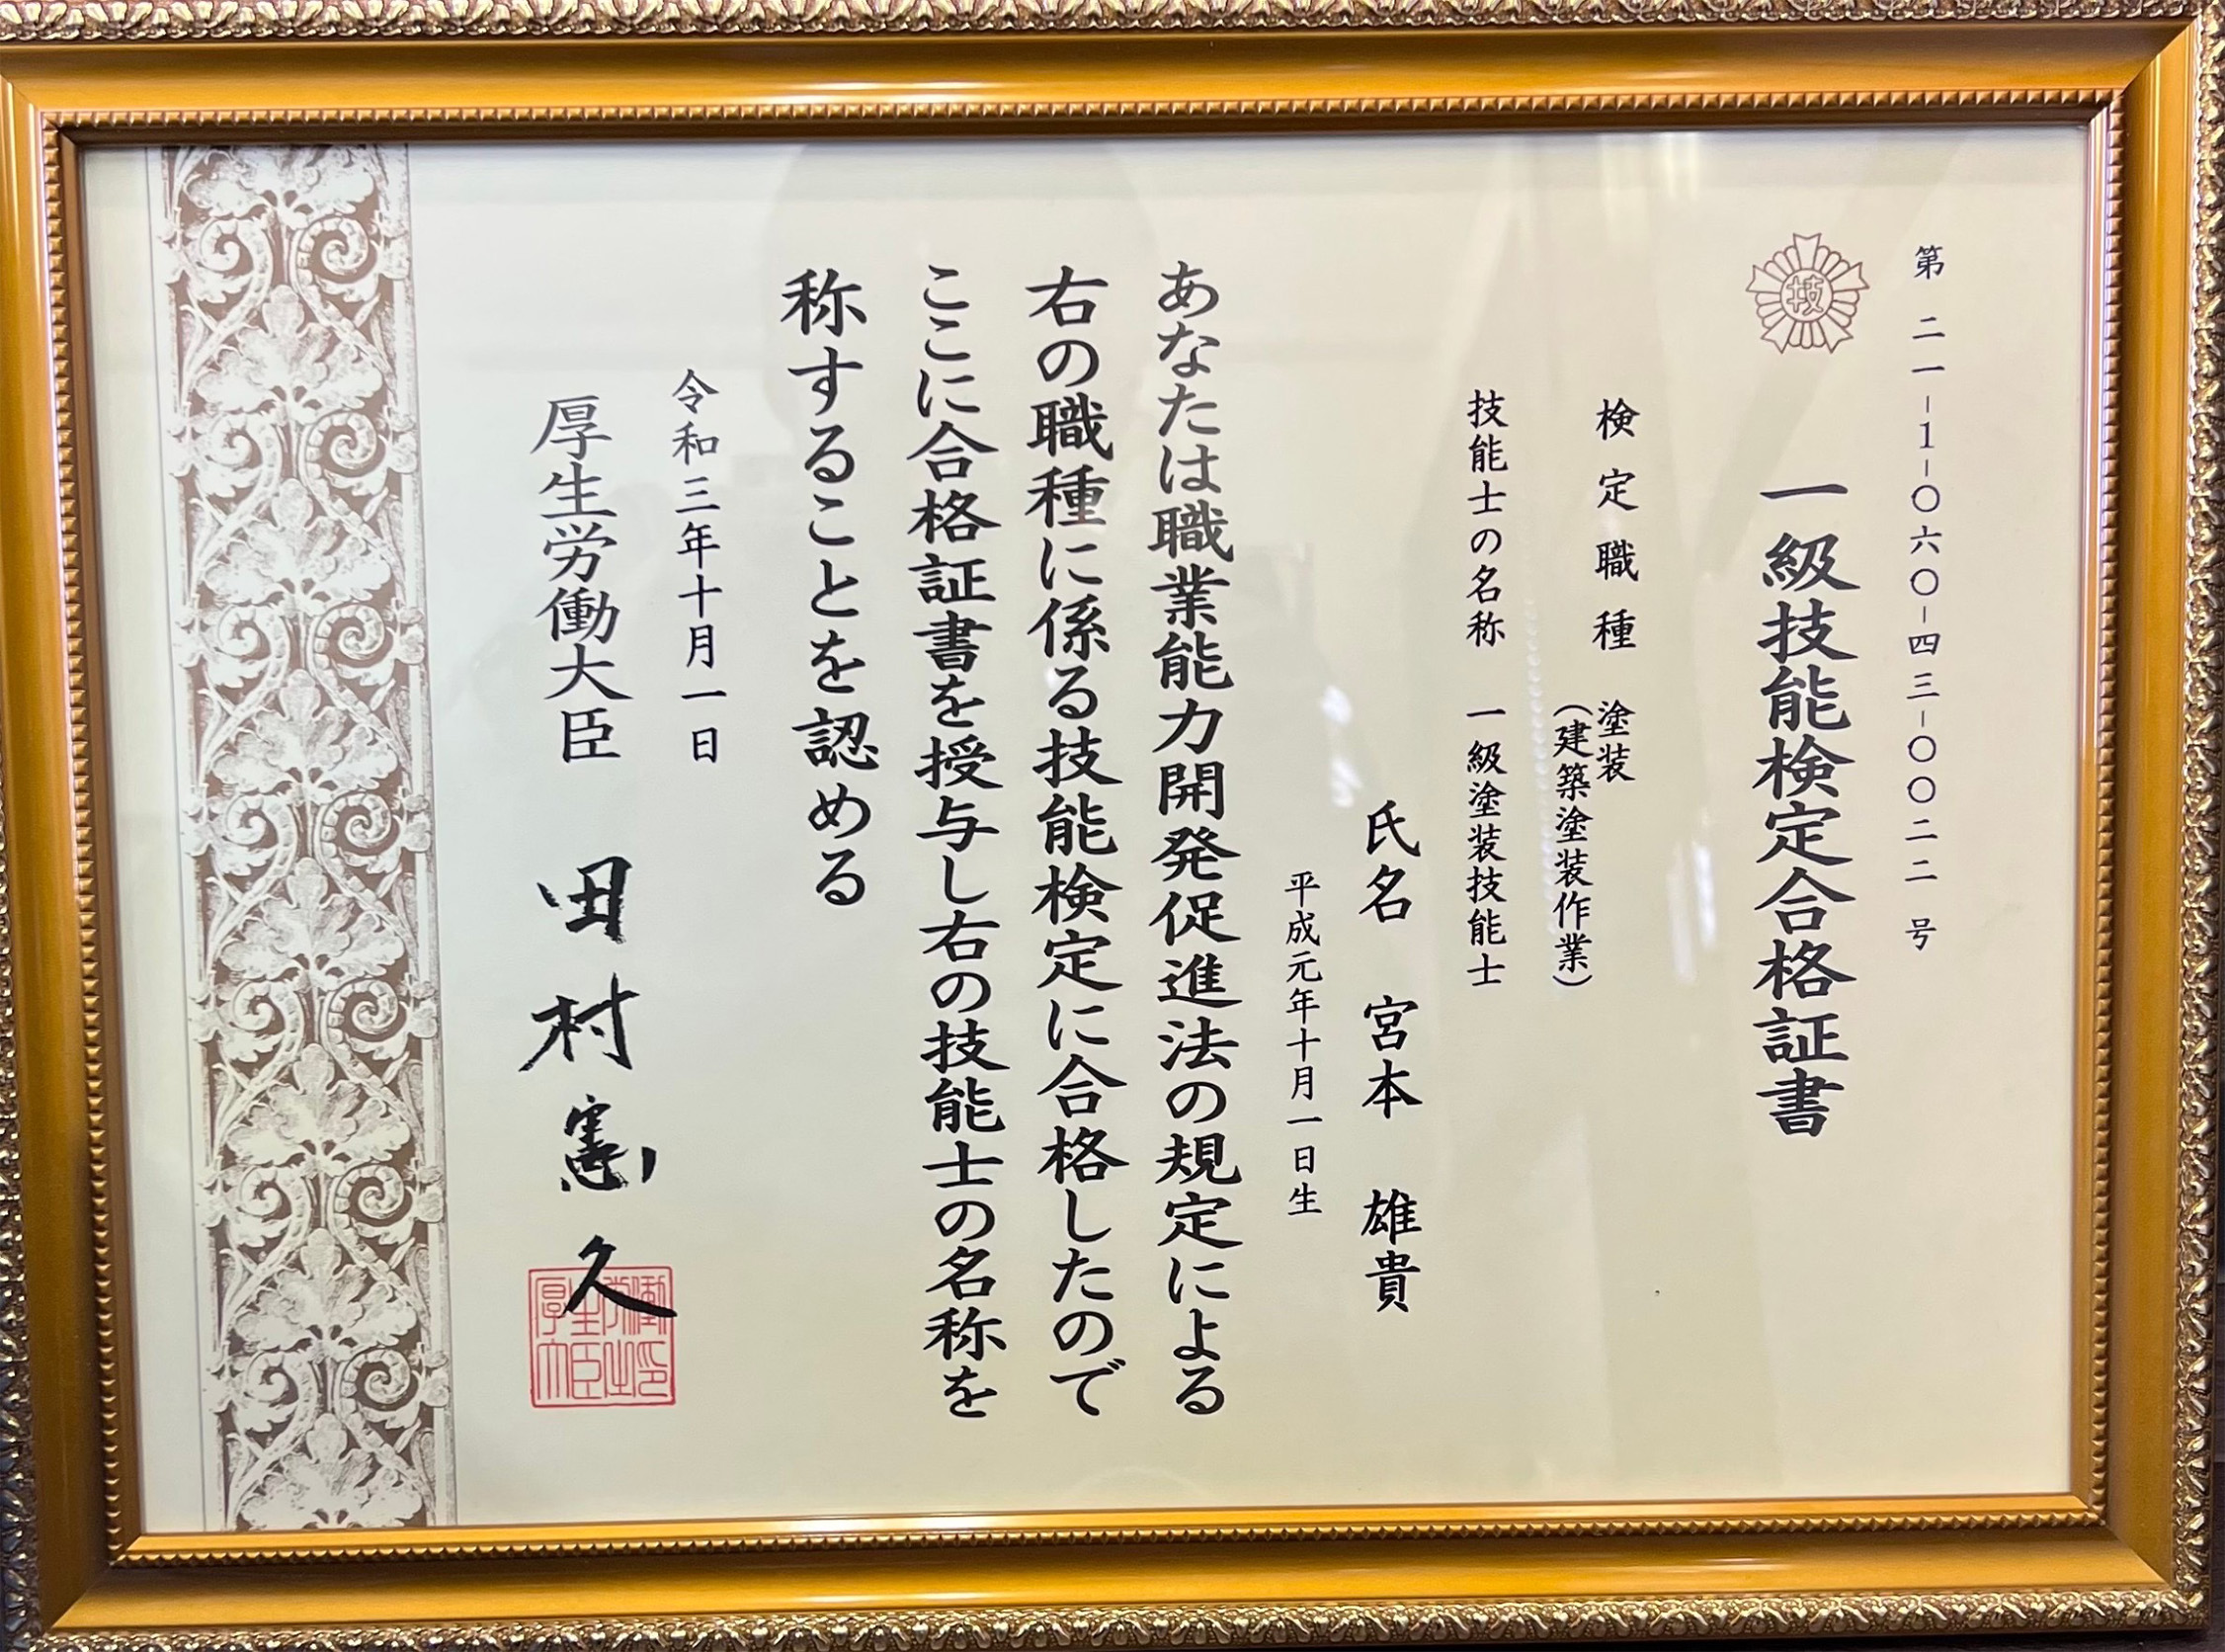 第 二一-1-〇六〇-四三-〇〇二二 号
技
一級技能検定合格証書
検定職種 塗装
（建築塗装作業）
技能士の名称 一級塗装技能士
氏名 宮本 雄貴
平成元年十月一日生
あなたは職業能力開発促進法の規定による
右の職種に係る技能検定に合格したので
ここに合格証書を授与し右の技能士の名称を
称することを認める
令和三年十月一日
厚生労働大臣 田村憲久
厚生労働大臣之印